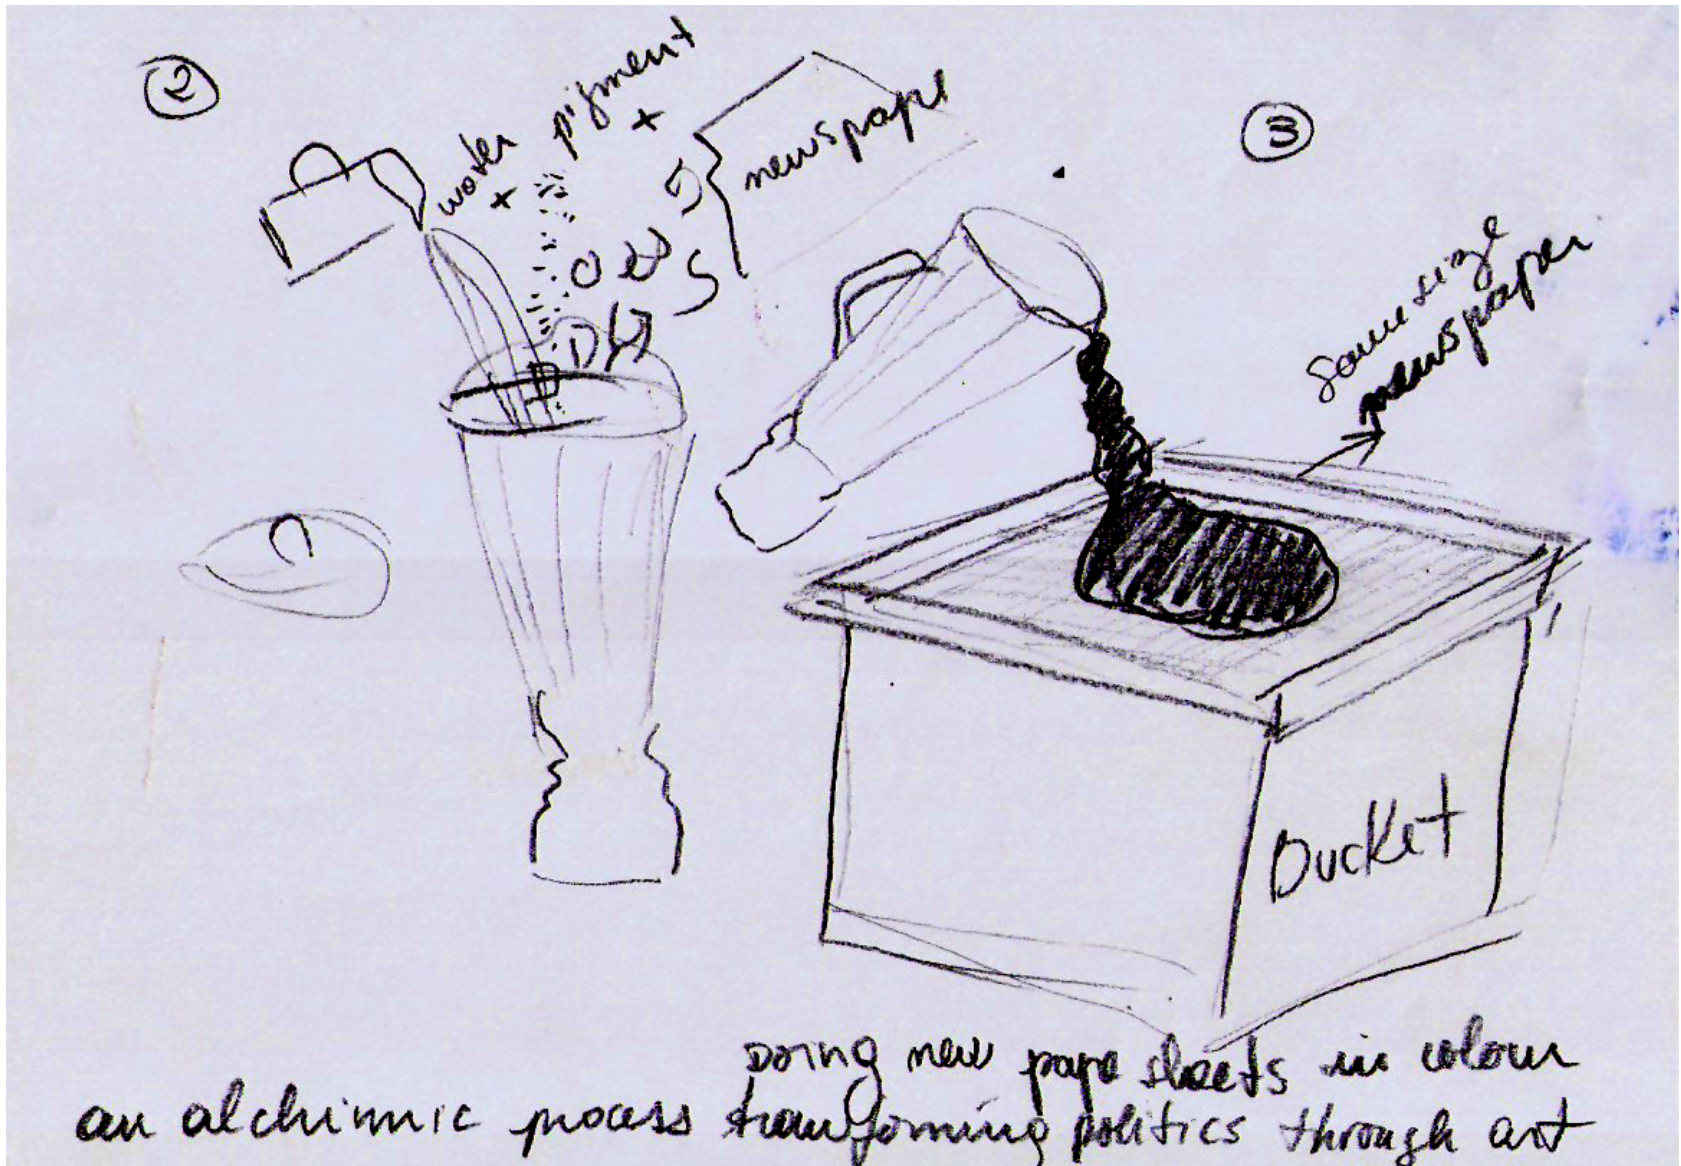 2
water + pigment +
newspape
3
same size
newspaper
Bucket
Doing new pape sheets in colour
an alchimic process transforming politics through art